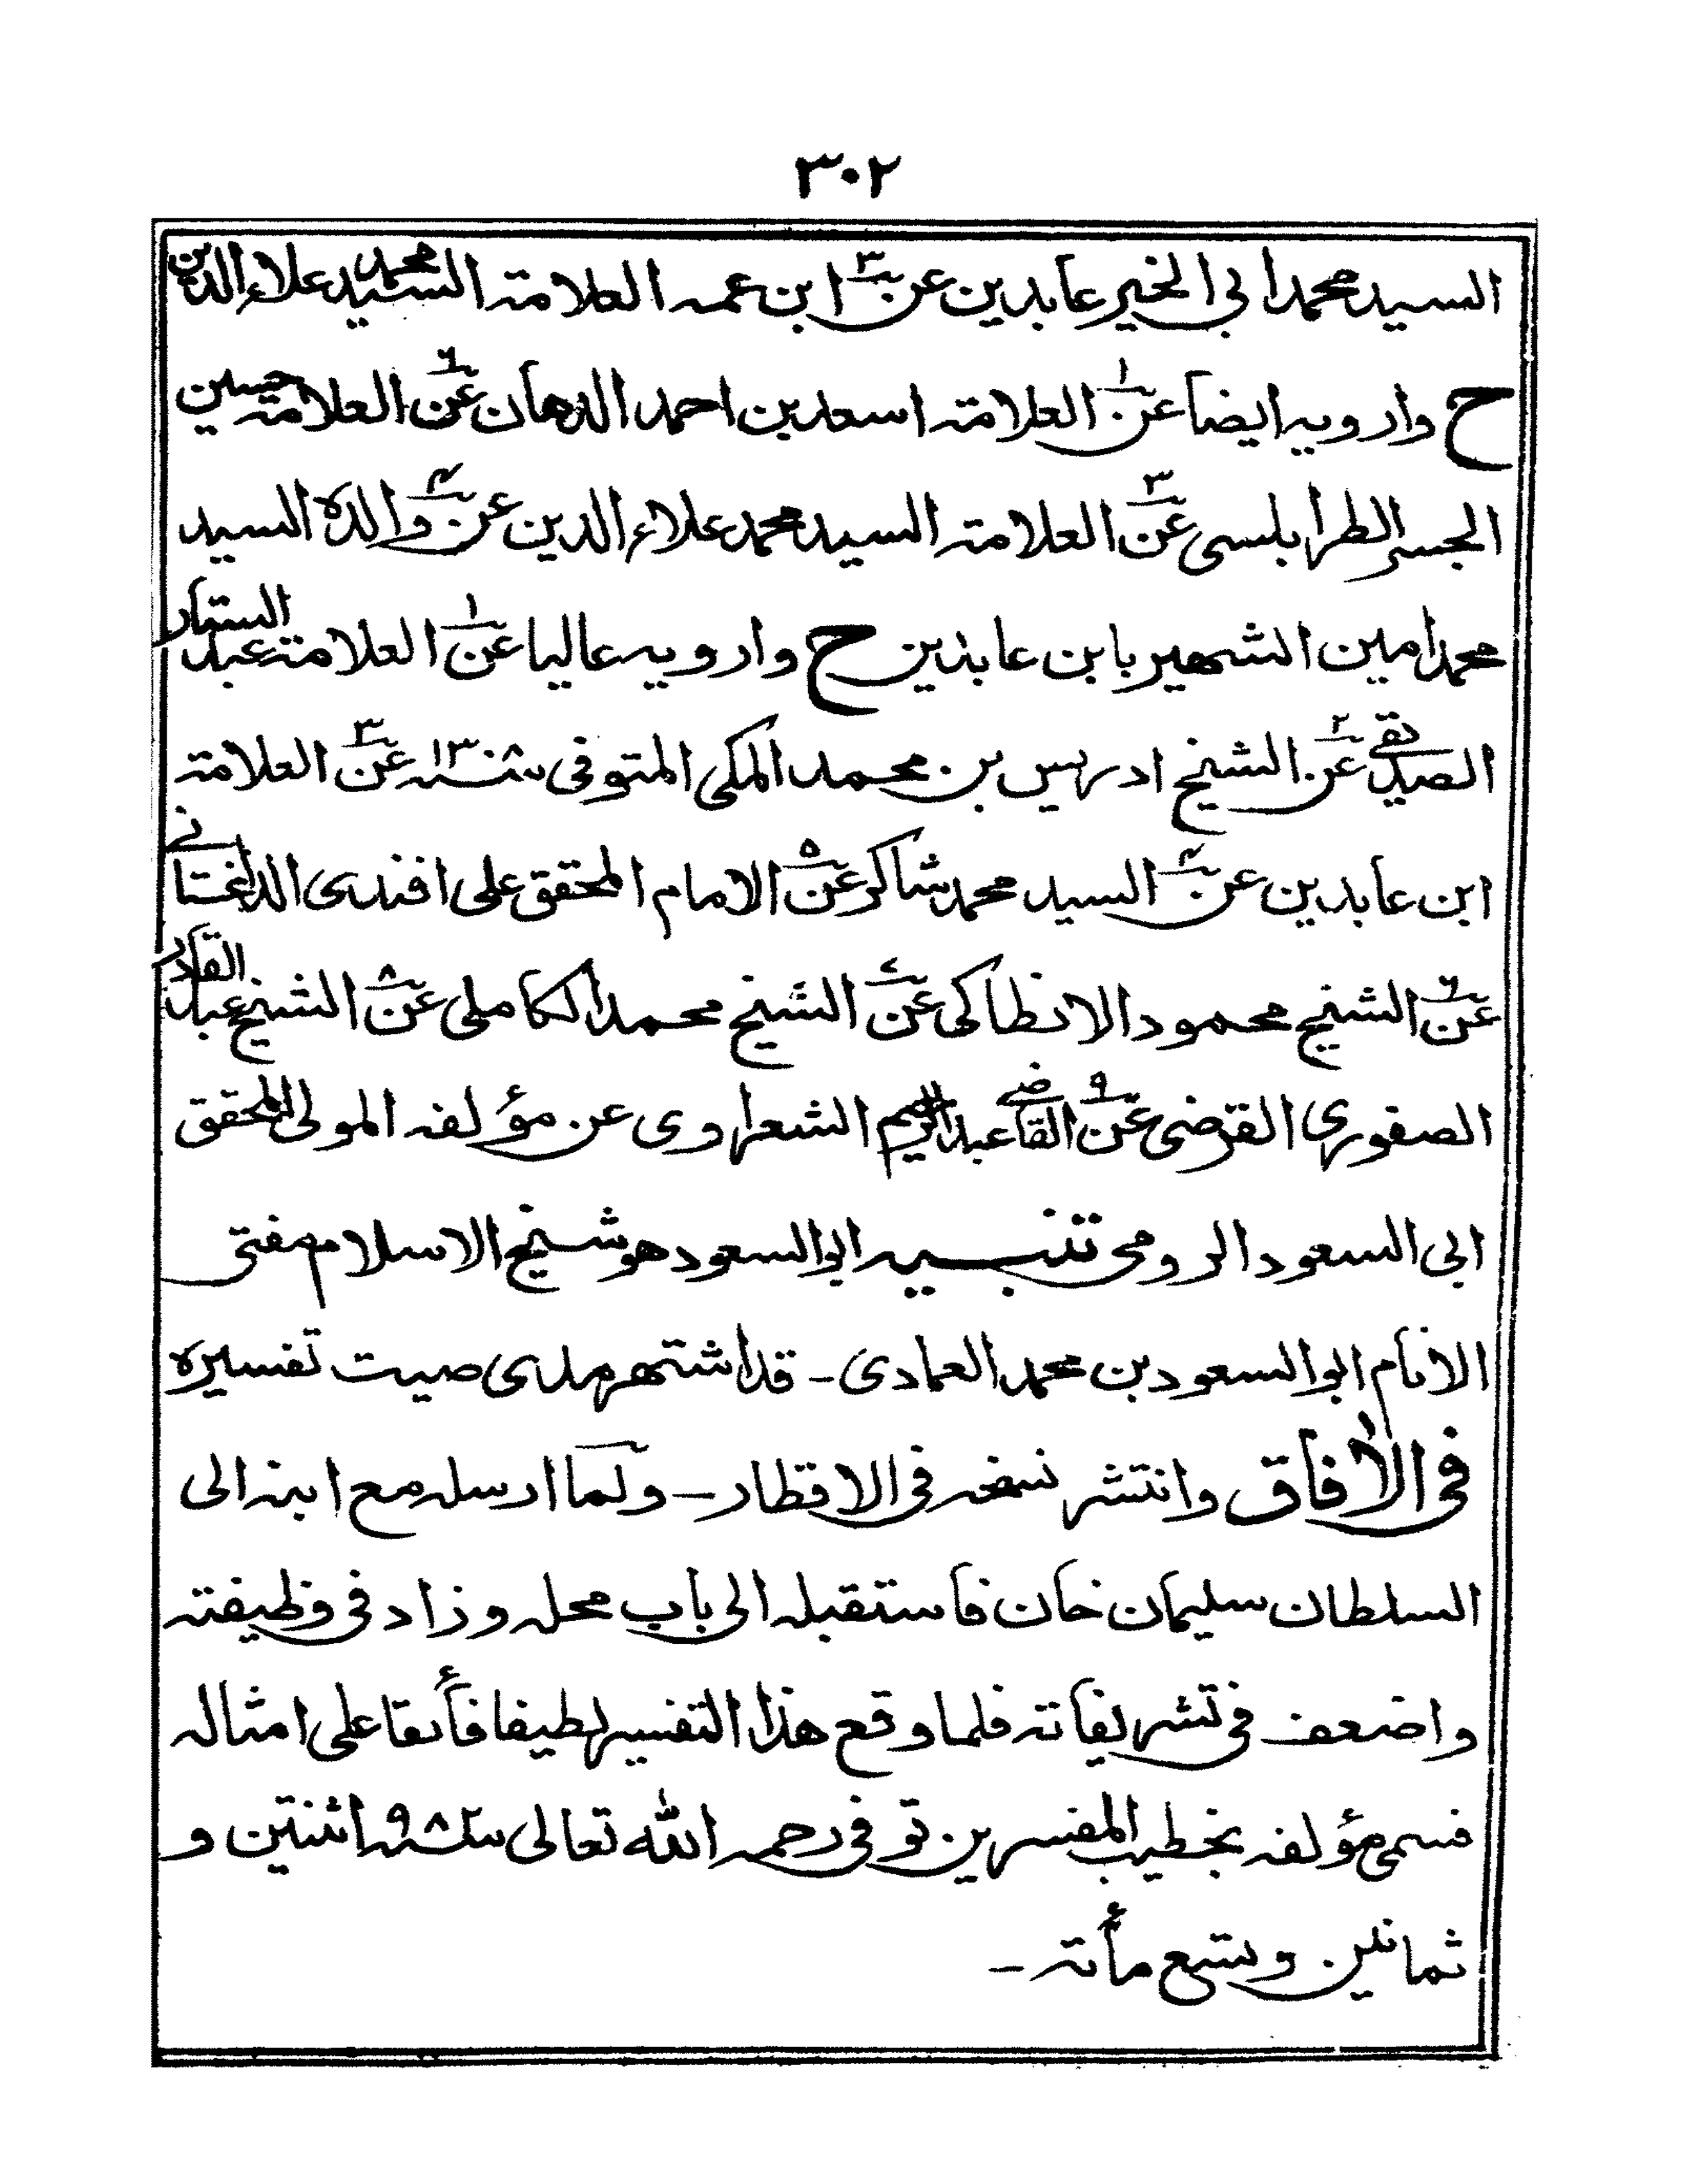 ٣٠٢
السيد محمد ابي الخير عابدين عن٣ ابن عمه العلامة السيد محمد علاء الدين
ح وارويه ايضا عن١ العلامة اسعد بن احمد الدهان عن٢ العلامة حسين
الجسر الطرابلسى عن٣ العلامة السيد محمد علاء الدين عن٤ والده السيد
محمد امين الشهير بابن عابدين ح وارويه عاليا عن١ العلامة عبد الستار
الصديقى عن٢ الشيخ ادريس بن محمد المكى المتوفى عن٣ العلامة
ابن عابدين عن٤ السيد محمد شاكر عن٥ الامام المحقق على افندى الداغستانى
عن٦ الشيخ محمود الانطاكى عن٧ الشيخ محمد الكاملى عن٨ الشيخ عبد القادر
الصفورى القرضى عن٩ القاضى الشعراوى عن مؤلفه المولى المحقق
ابى السعود الرومى تنبيه ابو السعود هو شيخ الاسلام مفتى
الانام ابو السعود بن محمد العمادى - قد اشتهر صيت تفسيره
فى الأفاق وانتشر نسخه فى الاقطار - ولما ارسله مع ابنه الى
السلطان سليمان خان فاستقبله الى باب محله وزاد فى وظيفته
واضعف فى تشريفاته فلما وقع هذا التفسير لطيفا فأىقا على امثاله
فسمى مؤلفه بخطيب المفسرين توفى رحمه الله تعالى سنة ٩٨٢ اثنتين و
ثمانين وتسع مأئة -